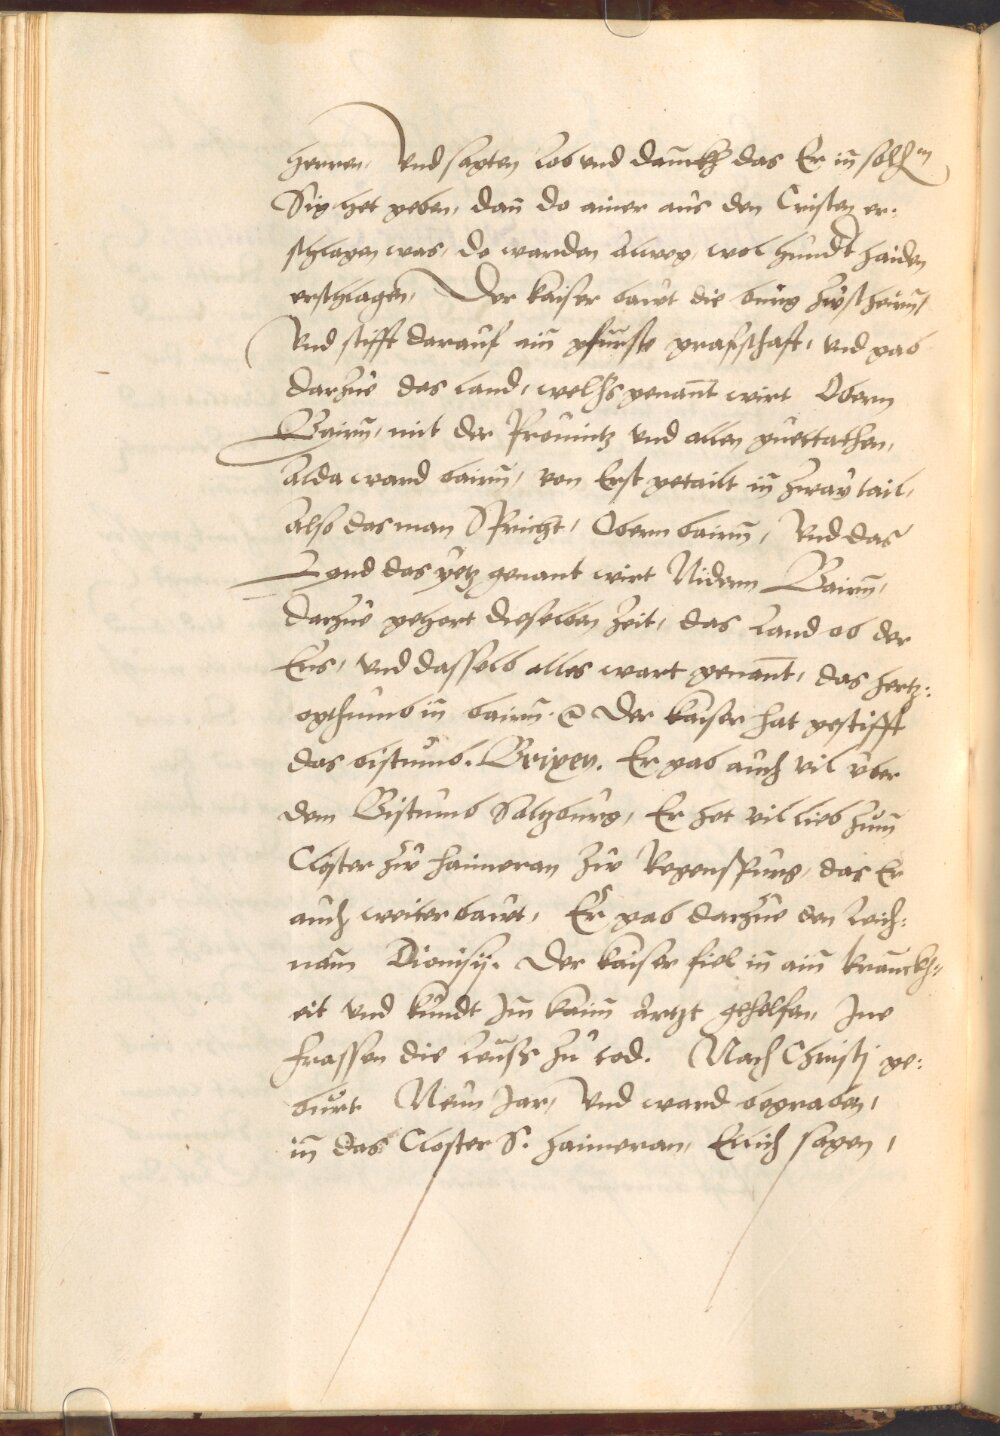 herren, Vnd sagten Lob vnd danckh das Er in solhen
Sig het geben, dan do ainer aus den Cristen er:
schlagen was, do warden alweg, wol hundt haiden
erschlagen, Der kaiser baut die burg zu scheirn,
Vnd stifft darauf ain gfurste grafschaft, vnd gab
darzue das land, welhs genant wirt Obern
Bairn, mit der Prouintz vnd allen
Alda ward bairn, von Erst getailt in zway tail,
Also das man Spricht, Obern bairn, Vnd das
Land das yetz genant wirt Nidern Bairn,
darzue gehort dieselben Zeit, das Land ob der
Ens, vnd dasselb alles wart genant, das hertz:
ogthumb in bairn. Der kaiser hat gestifft
das bistumb. Brixen. Er gab auch vil vber
dem Bistumb Saltzburg, Er het vil lieb zum
Closter zw haimeran zw Regenspurg, das Er
auch weiter baut, Er gab darzue den Leich:
nam Dionisij. Der kaiser fiel in ain kranckh:
eit vnd kundt Im kain artzt gehelfen, Ine
frassen die Leuss zu tod. Nach Christj ge:
burt Neun Jar, Vnd ward begraben,
in das Closter S. haimeran, Etlich sagen,